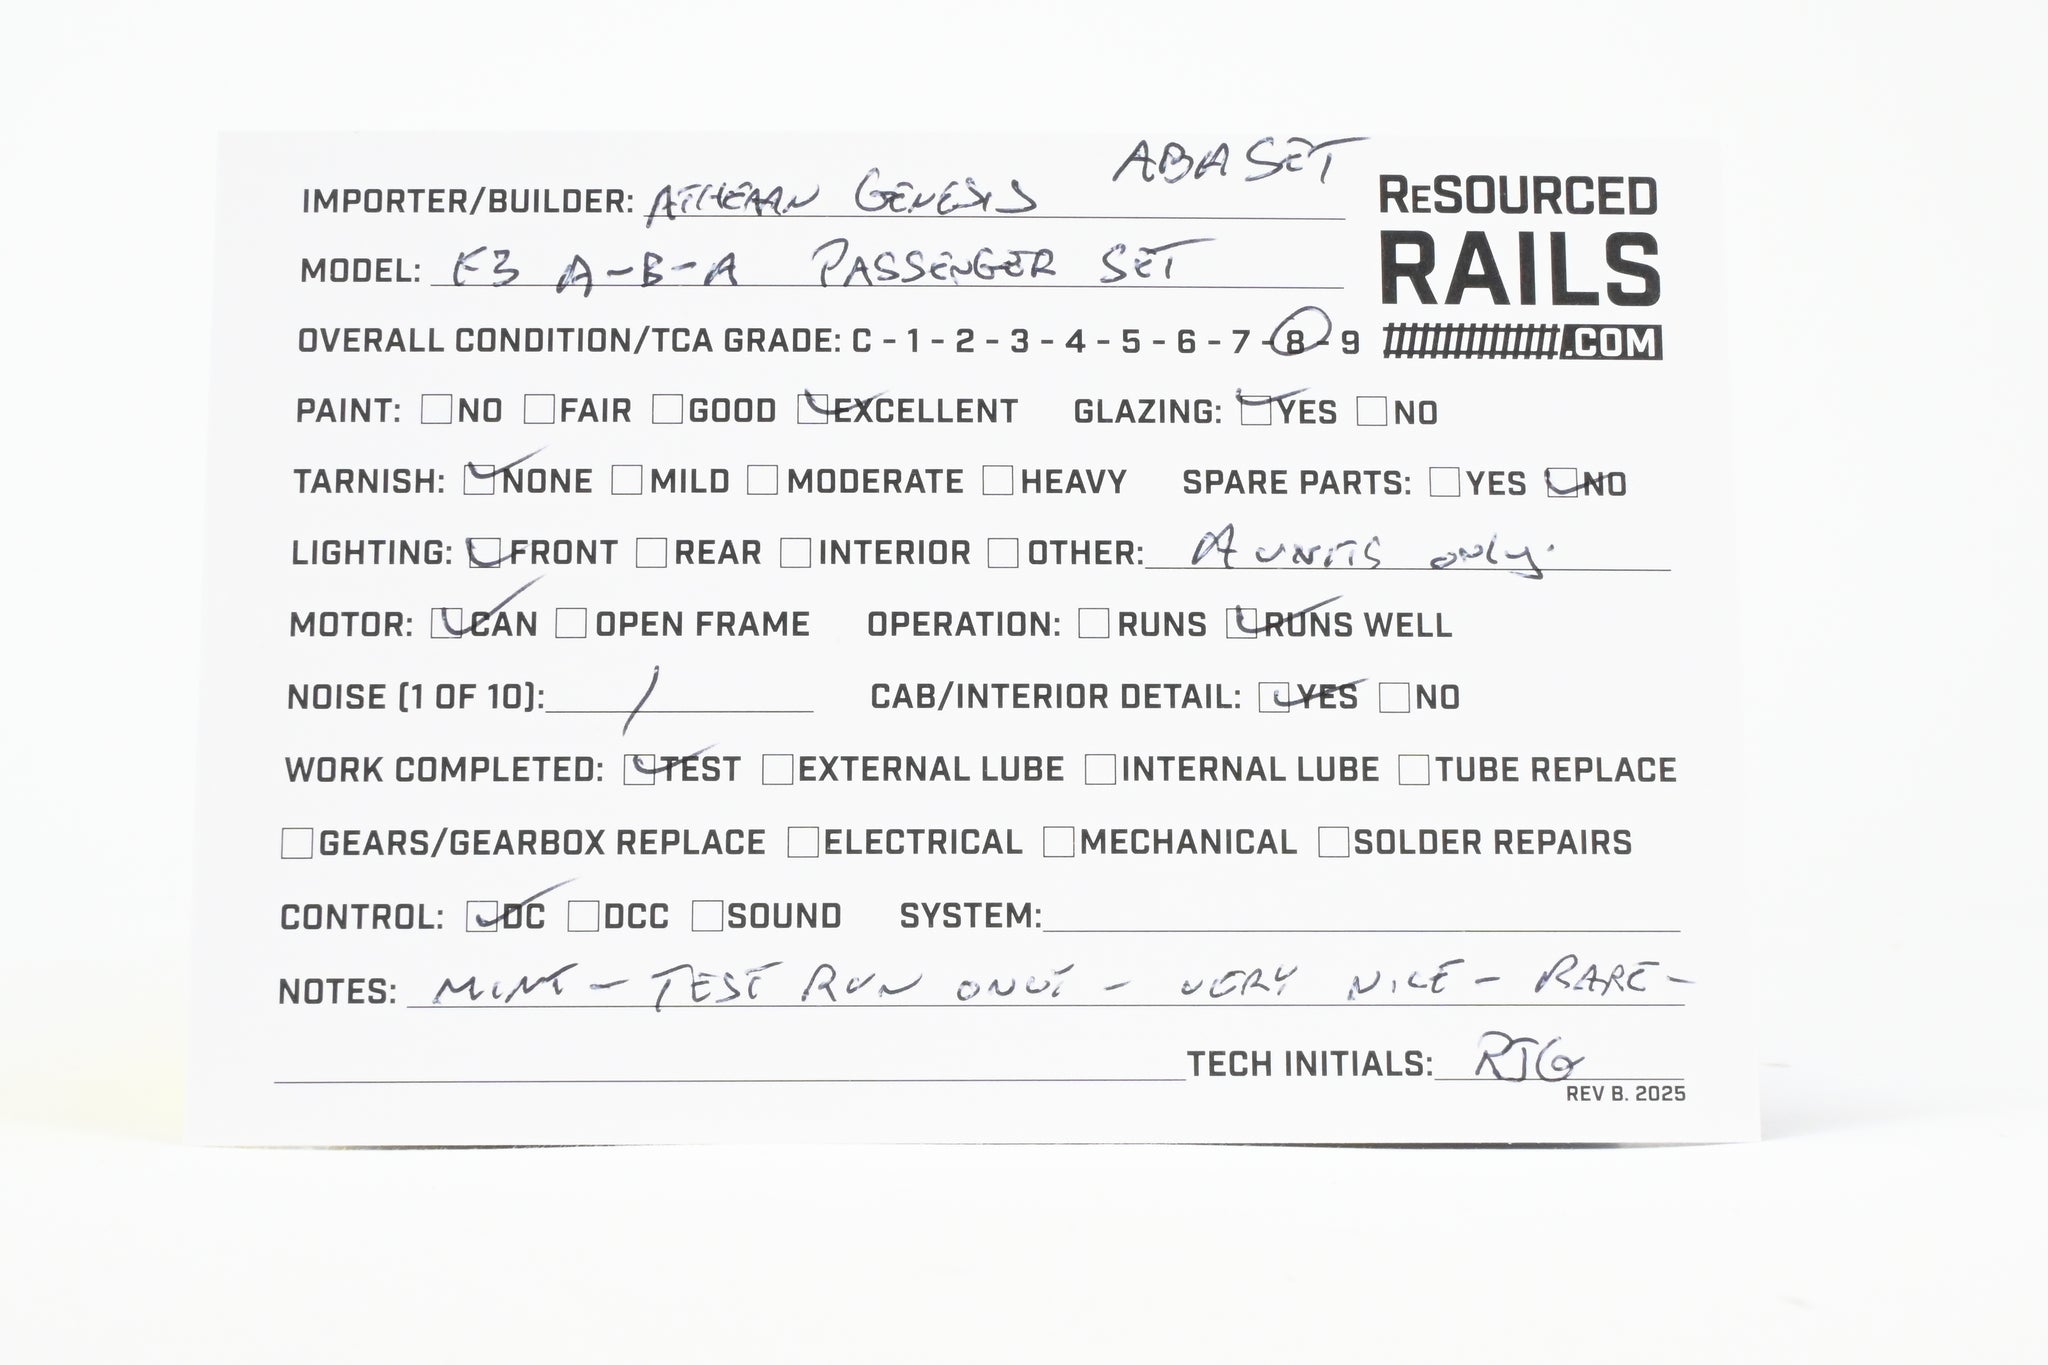 ABA SET
IMPORTER/BUILDER: ATHEARN GENESIS
RESOURCED
RAILS
.COM
MODEL: F3 A-B-A PASSENGER SET
OVERALL CONDITION/TCA GRADE: C - 1 - 2 - 3 - 4 - 5 - 6 - 7 - 8 - 9
PAINT: NO FAIR GOOD EXCELLENT GLAZING: YES NO
TARNISH: NONE MILD MODERATE HEAVY SPARE PARTS: YES NO
LIGHTING: FRONT REAR INTERIOR OTHER: A UNITS ONLY.
MOTOR: CAN OPEN FRAME OPERATION: RUNS RUNS WELL
NOISE (1 OF 10): 1 CAB/INTERIOR DETAIL: YES NO
WORK COMPLETED: TEST EXTERNAL LUBE INTERNAL LUBE TUBE REPLACE
GEARS/GEARBOX REPLACE ELECTRICAL MECHANICAL SOLDER REPAIRS
CONTROL: DC DCC SOUND SYSTEM:
NOTES: MINT - TEST RUN ONLY - VERY NICE - RARE -
TECH INITIALS: RJG
REV B. 2025